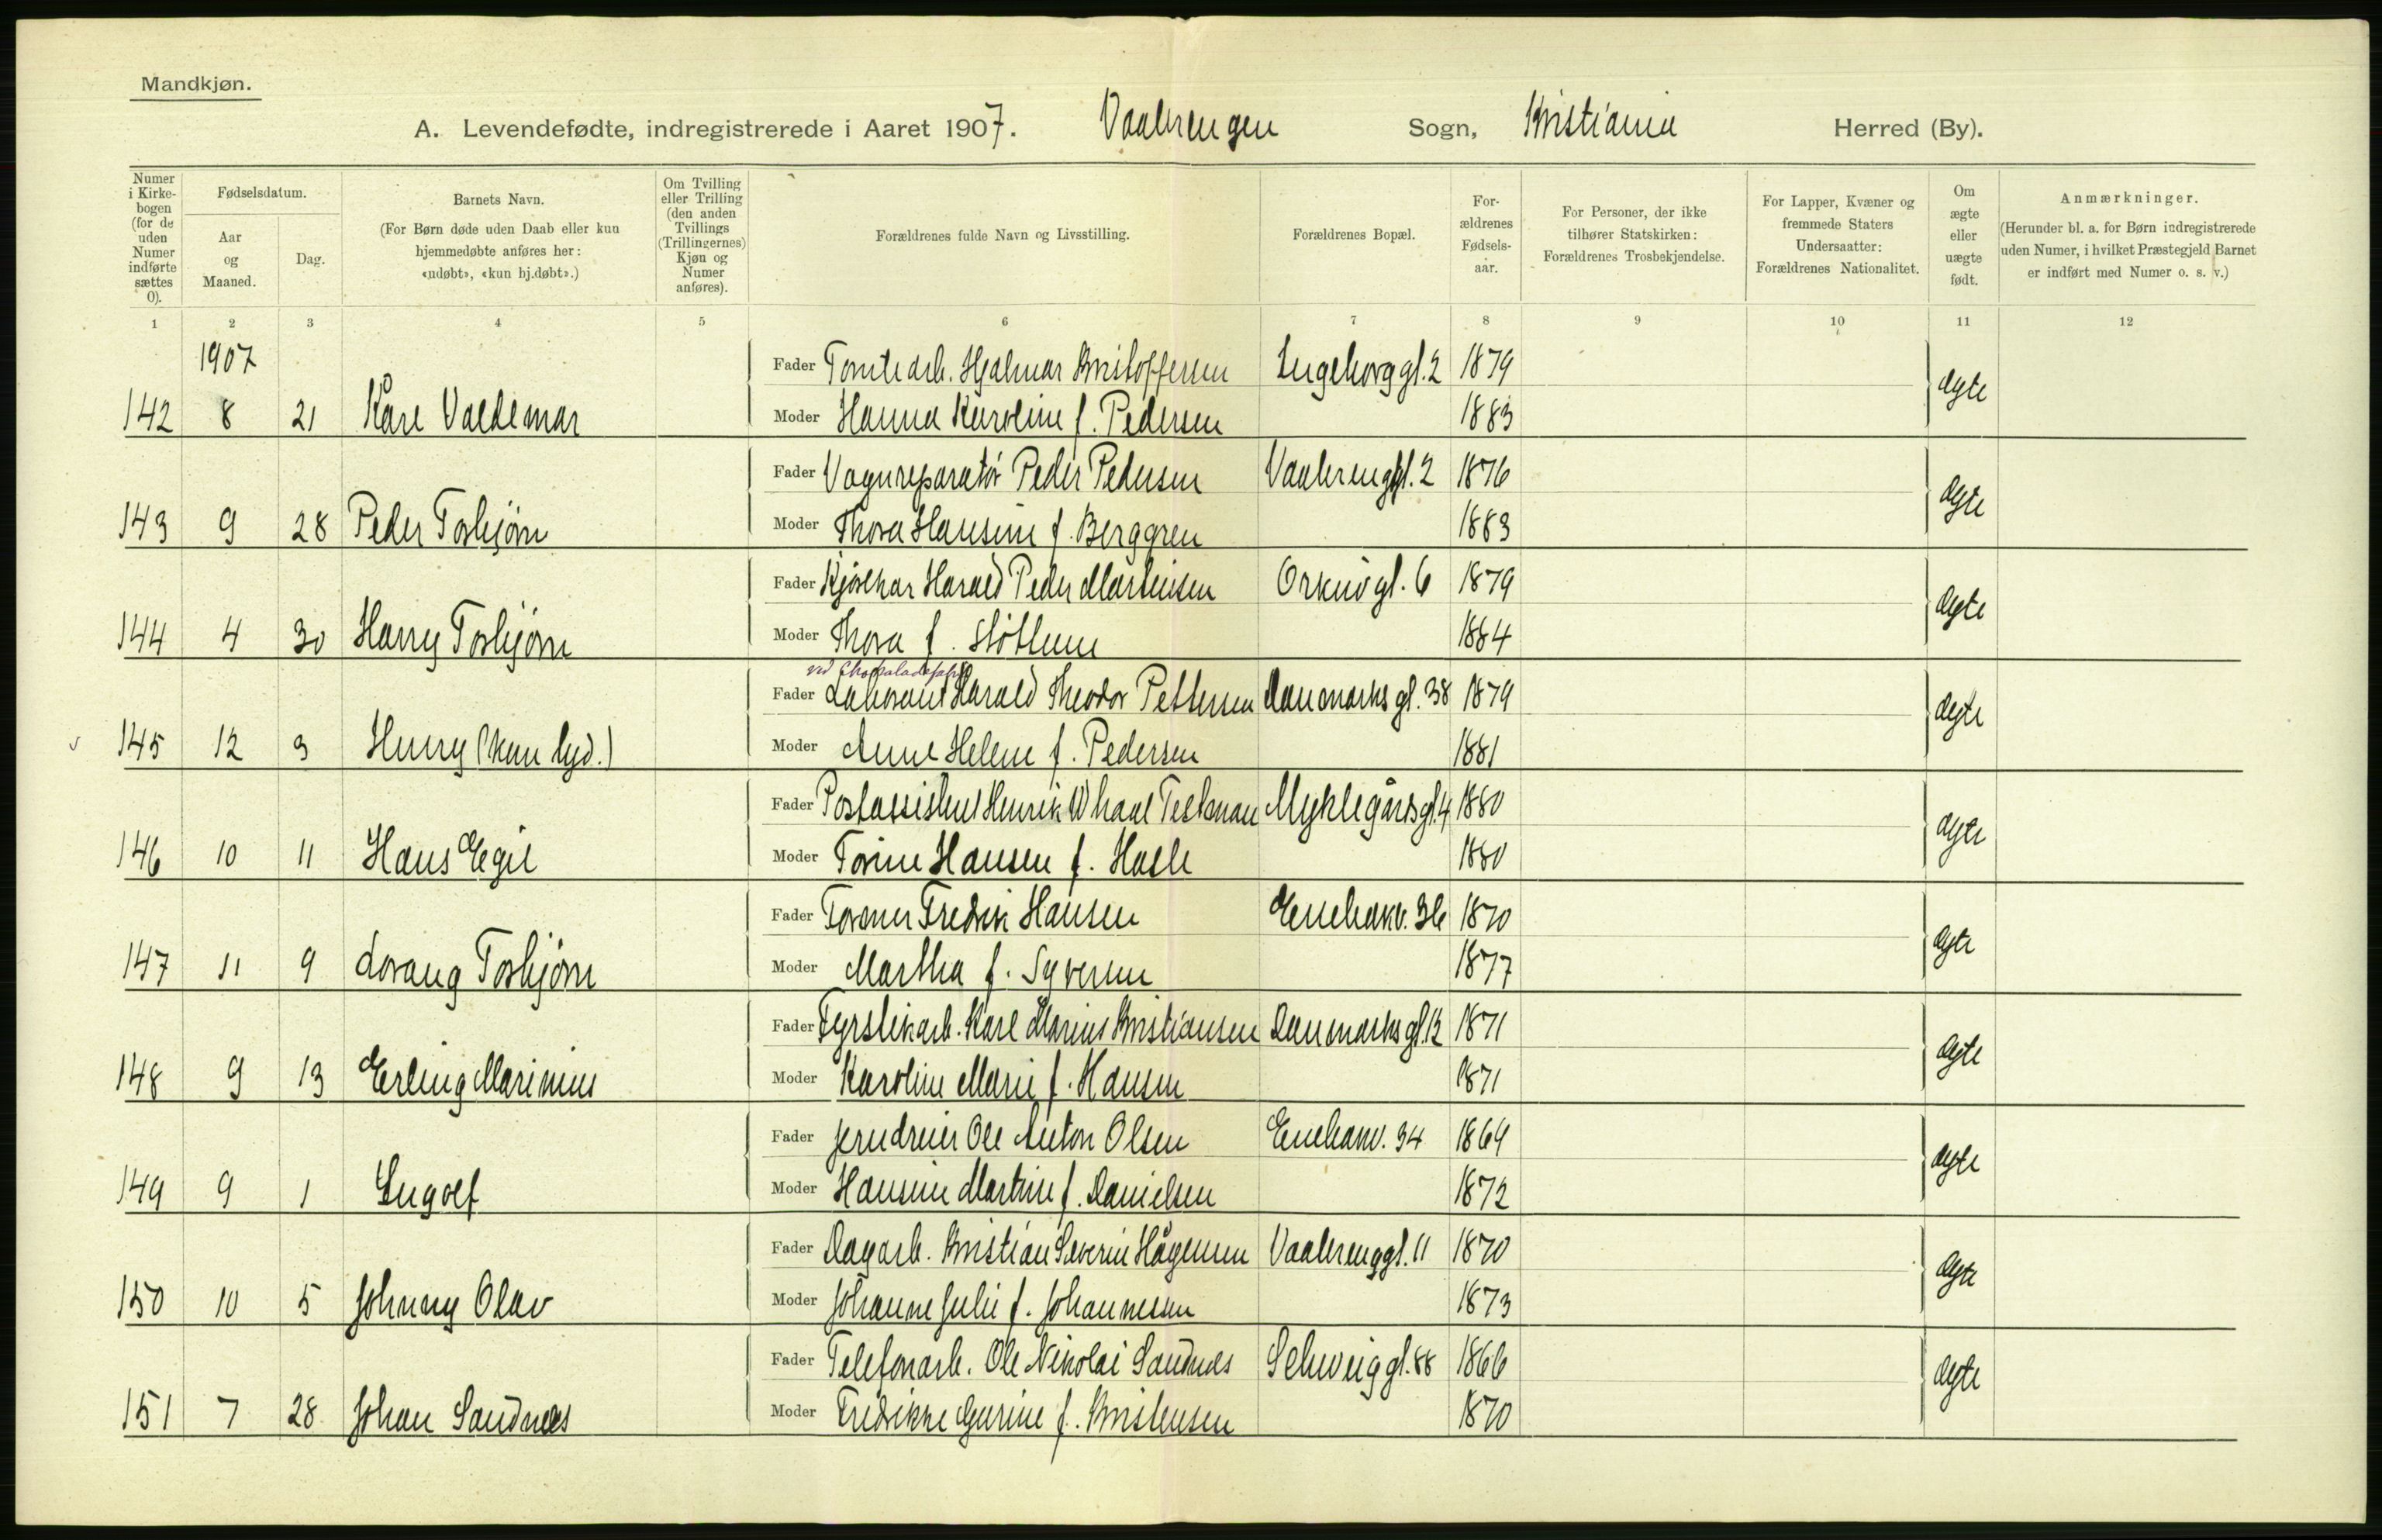 Mandkjøn.
A. Levendefødte, indregistrerede i Aaret 1907. Vaalerengen Sogn, Kristiania Herred (By).
Numer i Kirkebogen (for de uden Numer indførte sættes 0).
Fødselsdatum.
Aar og Maaned.
Dag.
Barnets Navn.
(For Børn døde uden Daab eller kun hjemmedøbte anføres her: «udøbt», «kun hj.døbt».)
Om Tvilling eller Trilling (den anden Tvillings (Trillingernes) Kjøn og Numer anføres).
Forældrenes fulde Navn og Livsstilling.
Forældrenes Bopæl.
Forældrenes Fødselsaar.
For Personer, der ikke tilhører Statskirken: Forældrenes Trosbekjendelse.
For Lapper, Kvæner og fremmede Staters Undersaatter: Forældrenes Nationalitet.
Om ægte eller uægte født.
Anmærkninger.
(Herunder bl. a. for Børn indregistrerede uden Numer, i hvilket Præstegjeld Barnet er indført med Numer o. s. v.)
1 2 3 4 5 6 7 8 9 10 11 12
1907
Fader Tomtearb. Hjalmar Kristoffersen Ingeborggt. 2 1879 ægte
142 8 21 Kåre Valdemar Moder Hanna Karoline f. Pedersen 1883
Fader Vognreparatør Peder Pedersen Vaalerenggt. 2 1876 ægte
143 9 28 Peder Torbjørn Moder Thora Hansine f. Berggren 1883
Fader Harald Peder Martinsen Orknøgt. 6 1879 ægte
144 4 30 Harry Torbjørn Moder Thora f. 1884
ved Chokoladefabr.
Fader Laborant Harald Theodor Pettersen Danmarksgt. 38 1879 ægte
145 12 3 Henry (kun hjd.) Moder Anne Helene f. Pedersen 1881
Fader Postassistent Henrik Myklegårdsgt. 4 1880 ægte
146 10 11 Hans Egil Moder Torine Hansen f. Hasle 1880
Fader Former Fredrik Hansen Enebakv. 36 1870 ægte
147 11 9 Lorang Torbjørn Moder Martha f. Syversen 1877
Fader Fyrstikarb. Karl Marius Kristiansen Danmarksgt. 12 1871 ægte
148 9 13 Erling Marinius Moder Karoline Marie f. Hansen 1871
Fader Jerndreier Ole Anton Olsen Enebakv. 34 1864 ægte
149 9 1 Ingolf Moder Hansine Martine f. Danielsen 1872
Fader Dagarb. Kristian Severin Hågensen Vaalerenggt. 11 1870 ægte
150 10 5 Johnny Olav Moder Johanne Julie f. Johannessen 1873
Fader Telefonarb. Ole Nikolai Sandnæs Schweiggt. 88 1866 ægte
151 7 28 Johan Sandnæs Moder Fredrikke Gurine f. Kristensen 1870